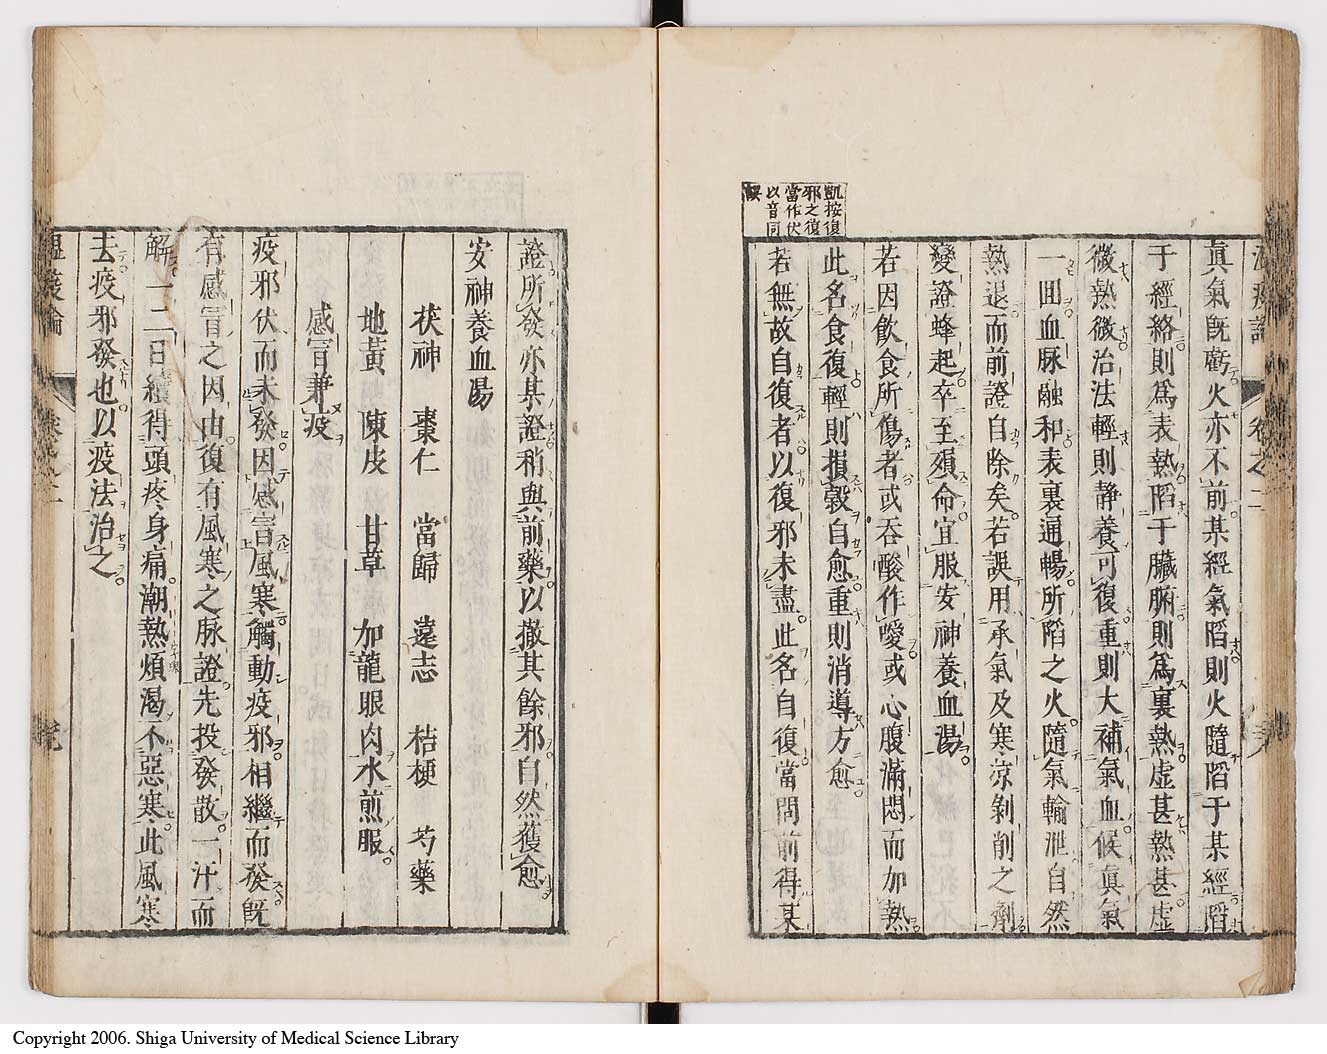 凱按復
邪之復
當作伏
以音同
誤
眞氣旣虧火亦不前某經氣陷則火隨陷于某經陷
于經絡則爲表熱陷于臟腑則爲裏熱虛甚熱甚虛
微熱微治法輕則靜養可復重則大補氣血候眞氣
一囬血脉融和表裏通暢所陷之火隨氣輸泄自然
熱退而前證自除矣若誤用承氣及寒凉剝削之劑
變證蜂起卒至殞命宜服安神養血湯
若因飲食所傷者或吞酸作噯或心腹滿悶而加熱
此名食復輕則損穀自愈重則消導方愈
若無故自復者以復邪未盡此名自復當問前得某
證所發亦某證稍與前藥以撤其餘邪自然獲愈
安神養血湯
茯神　棗仁　當歸　遠志　桔梗　芍藥
地黃　陳皮　甘草　加龍眼肉水煎服
感冒兼疫
疫邪伏而未發因感冒風寒觸動疫邪相繼而發旣
有感冒之因由復有風寒之脉證先投發散一汗而
解一二日續得頭疼身痛潮熱煩渴不惡寒此風寒
去疫邪發也以疫法治之
溫疫論　卷之二
Copyright 2006. Shiga University of Medical Science Library